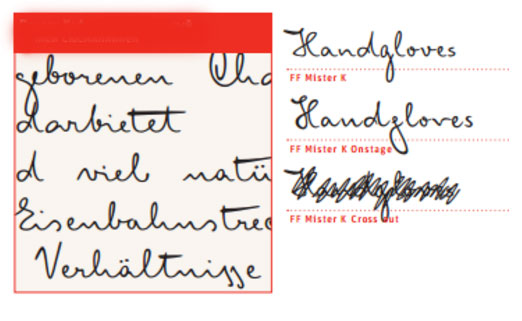 geborenen Cha
darbietet
d viel natü
Eisenbahnstrec
Verhältnisse
Handgloves
FF Mister K
Handgloves
FF Mister K Onstage
FF Mister K Cross out